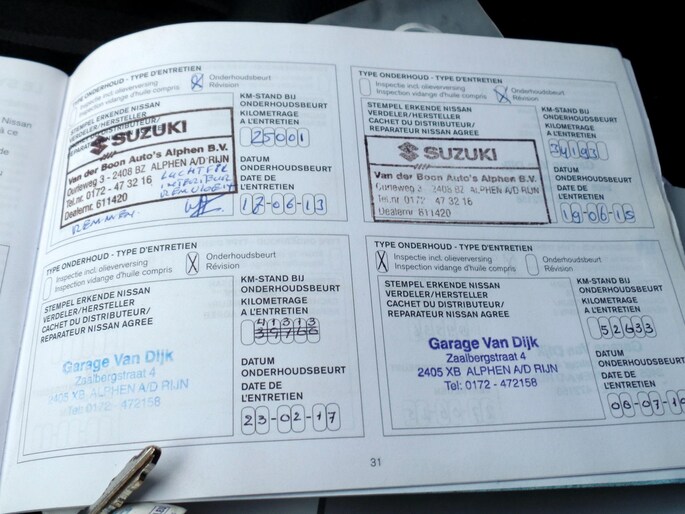 Nissan
à ce
TYPE ONDERHOUD - TYPE D'ENTRETIEN
Inspectie incl. olieverversing
Inspection vidange d'huile compris
X Onderhoudsbeurt
Révision
STEMPEL ERKENDE NISSAN
VERDELER/HERSTELLER
DISTRIBUTEUR/
SUZUKI
Van der Boon Auto's Alphen B.V.
Ourleweg 3 - 2408 BZ ALPHEN A/D RIJN
Tel.nr. 0172 - 47 32 16
Dealernr. 611420
LUCHTFR
REMVLOEIST
KM-STAND BIJ
ONDERHOUDSBEURT
KILOMETRAGE
A L'ENTRETIEN
25001
DATUM
ONDERHOUDSBEURT
DATE DE
L'ENTRETIEN
12-06-13
TYPE ONDERHOUD - TYPE D'ENTRETIEN
Inspectie incl. olieverversing
Inspection vidange d'huile compris
X Onderhoudsbeurt
Révision
STEMPEL ERKENDE NISSAN
VERDELER/HERSTELLER
CACHET DU DISTRIBUTEUR/
REPARATEUR NISSAN AGREE
SUZUKI
Van der Boon Auto's Alphen B.V.
Ourleweg 3 - 2408 BZ ALPHEN A/D RIJN
Tel.nr. 0172 - 47 32 16
Dealernr. 611420
KM-STAND BIJ
ONDERHOUDSBEURT
KILOMETRAGE
A L'ENTRETIEN
34193
DATUM
ONDERHOUDSBEURT
DATE DE
L'ENTRETIEN
19-06-15
TYPE ONDERHOUD - TYPE D'ENTRETIEN
Inspectie incl. olieverversing
Inspection vidange d'huile compris
X Onderhoudsbeurt
Révision
STEMPEL ERKENDE NISSAN
VERDELER/HERSTELLER
CACHET DU DISTRIBUTEUR/
REPARATEUR NISSAN AGREE
Garage Van Dijk
Zaalbergstraat 4
2405 XB ALPHEN A/D RIJN
Tel: 0172 - 472158
KM-STAND BIJ
ONDERHOUDSBEURT
KILOMETRAGE
A L'ENTRETIEN
41313
DATUM
ONDERHOUDSBEURT
DATE DE
L'ENTRETIEN
23-02-17
TYPE ONDERHOUD - TYPE D'ENTRETIEN
X Inspectie incl. olieverversing
Inspection vidange d'huile compris
Onderhoudsbeurt
Révision
STEMPEL ERKENDE NISSAN
VERDELER/HERSTELLER
CACHET DU DISTRIBUTEUR/
REPARATEUR NISSAN AGREE
Garage Van Dijk
Zaalbergstraat 4
2405 XB ALPHEN A/D RIJN
Tel: 0172 - 472158
KM-STAND BIJ
ONDERHOUDSBEURT
KILOMETRAGE
A L'ENTRETIEN
52633
DATUM
ONDERHOUDSBEURT
DATE DE
L'ENTRETIEN
31